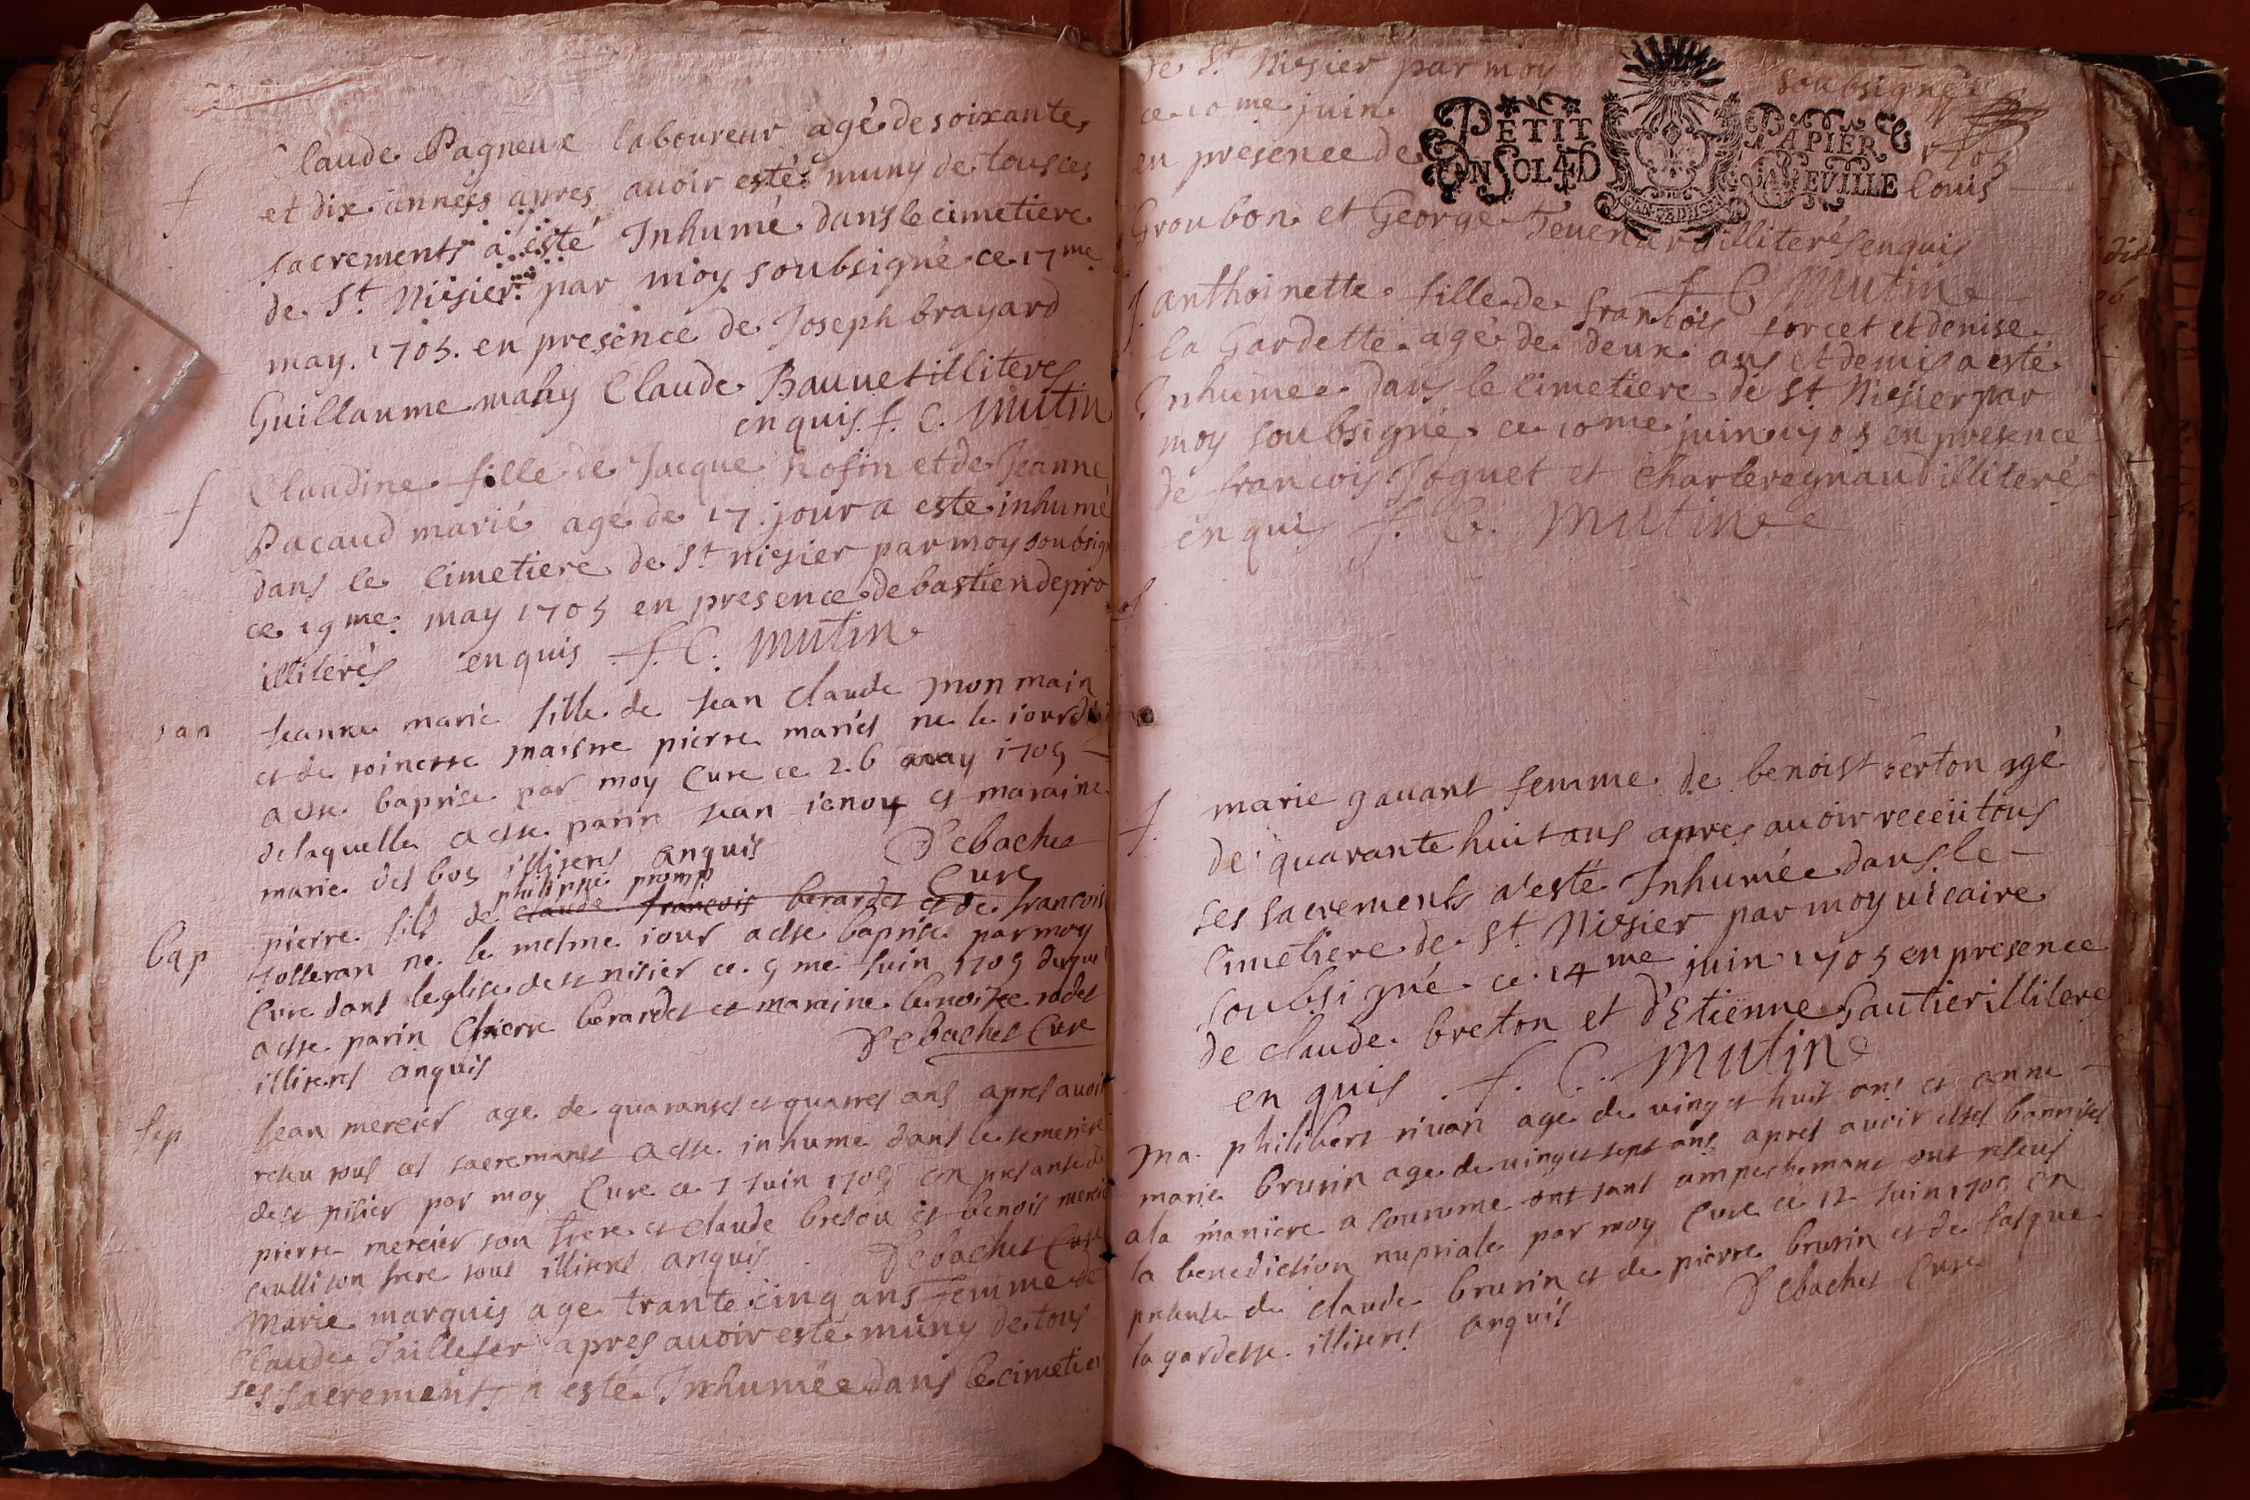 Claude Pagneux laboureur agé de soixante
et dix années apres avoir esté muny de tous ces
sacrements a esté Inhumé dans le cimetiere
de St Nisier par moy soubsigné ce 17me
may. 1705. en presence de Joseph brayard
Guillaume mahy Claude Bauuet illiteres
enquis. f. C. Mutin
f
Claudine fille de Jacque Rosin et de Jeanne
Pacaud marié age de 17 jour a este inhumé
dans le cimetiere de St nisier par moy soubsign
ce 19me may 1705 en presence de bastien depro
illiterés enquis f. C. Mutin
f
Jeanne marie fille de Jean Claude monmain
et de toinette maistre pierre mariés ne le iourdhui
a este baptise par moy Cure ce 26 may 1705
de laquelle a este parin Jean et maraine
marie des bos illiteres anquis Debachet
Cure
philippe
Bap
pierre fils de claude francois berardet et de francoise
tolleran ne le mesme iour a este baptise par moy
Cure dans leglise de st nisier ce 9me Juin 1705 duquel
a este parin pierre berardet et maraine benoiste
illiteres anquis Debachet Cure
Sep
Jean mercier age de quarantes et quatres ans apres avoir
receu tous ces sacremants a este inhume dans le semetiere
de st nisier par moy Cure ce 7 Juin 1705 en presante de
pierre mercier son frere et claude breton et benois mercie
son frere tous illiteres anquis Debachet Cure
Marie marquis age trante cinq ans femme de
Claude Taillefer apres avoir esté muny de tous
ses sacrements a esté Inhumée dans le cimetier
de St Nisier par moy soubsigné
ce 10me juin 1705
en presence de louis
Groubon et George Tevenar illiteré enquis
f C Mutin
PETIT PAPIER
UN SOL 4 D
f.
anthoinette fille de francois sorcet et denise
la Gardette agé de deux ans et demis a esté
Inhumée dans le cimetiere de St Nisier par
moy soubsigné ce 10me juin 1705 en presence
de francois Joguet et Charle regnaud illiteré
en quis f. C. Mutin
f.
marie gavant femme de benoist berton agé
de quarante huit ans apres avoir receü tous
ses sacrements a esté Inhumée dans le
cimetiere de St Nisier par moy vicaire
soubsigné ce 14me juin 1705 en presence
de claude breton et d'Etienne Gautier illitere
en quis f. C. Mutin
Ma.
philibert rivan age de vingt et huit ans et anne
marie brutin age de vingt et sept ans apres avoir estes bannises
a la maniere a coutume ont sans ampechemant ont reseus
la benediction nuptiale par moy Cure ce 12 Juin 1705 en
presante de claude brutin et de pierre brutin et de Jasque
la gardette illiteres anquis Debachet Cure